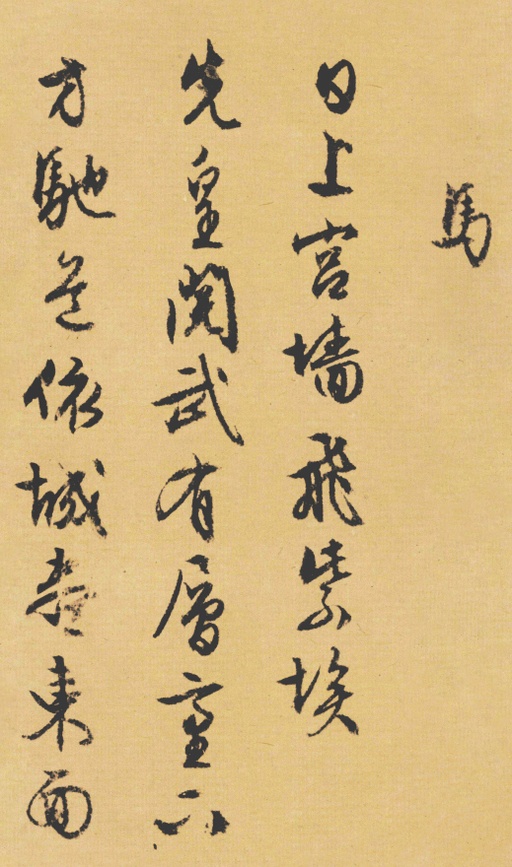 馬
日上宮墻飛紫埃
先皇閱武有層臺下
方馳道依城盡東面